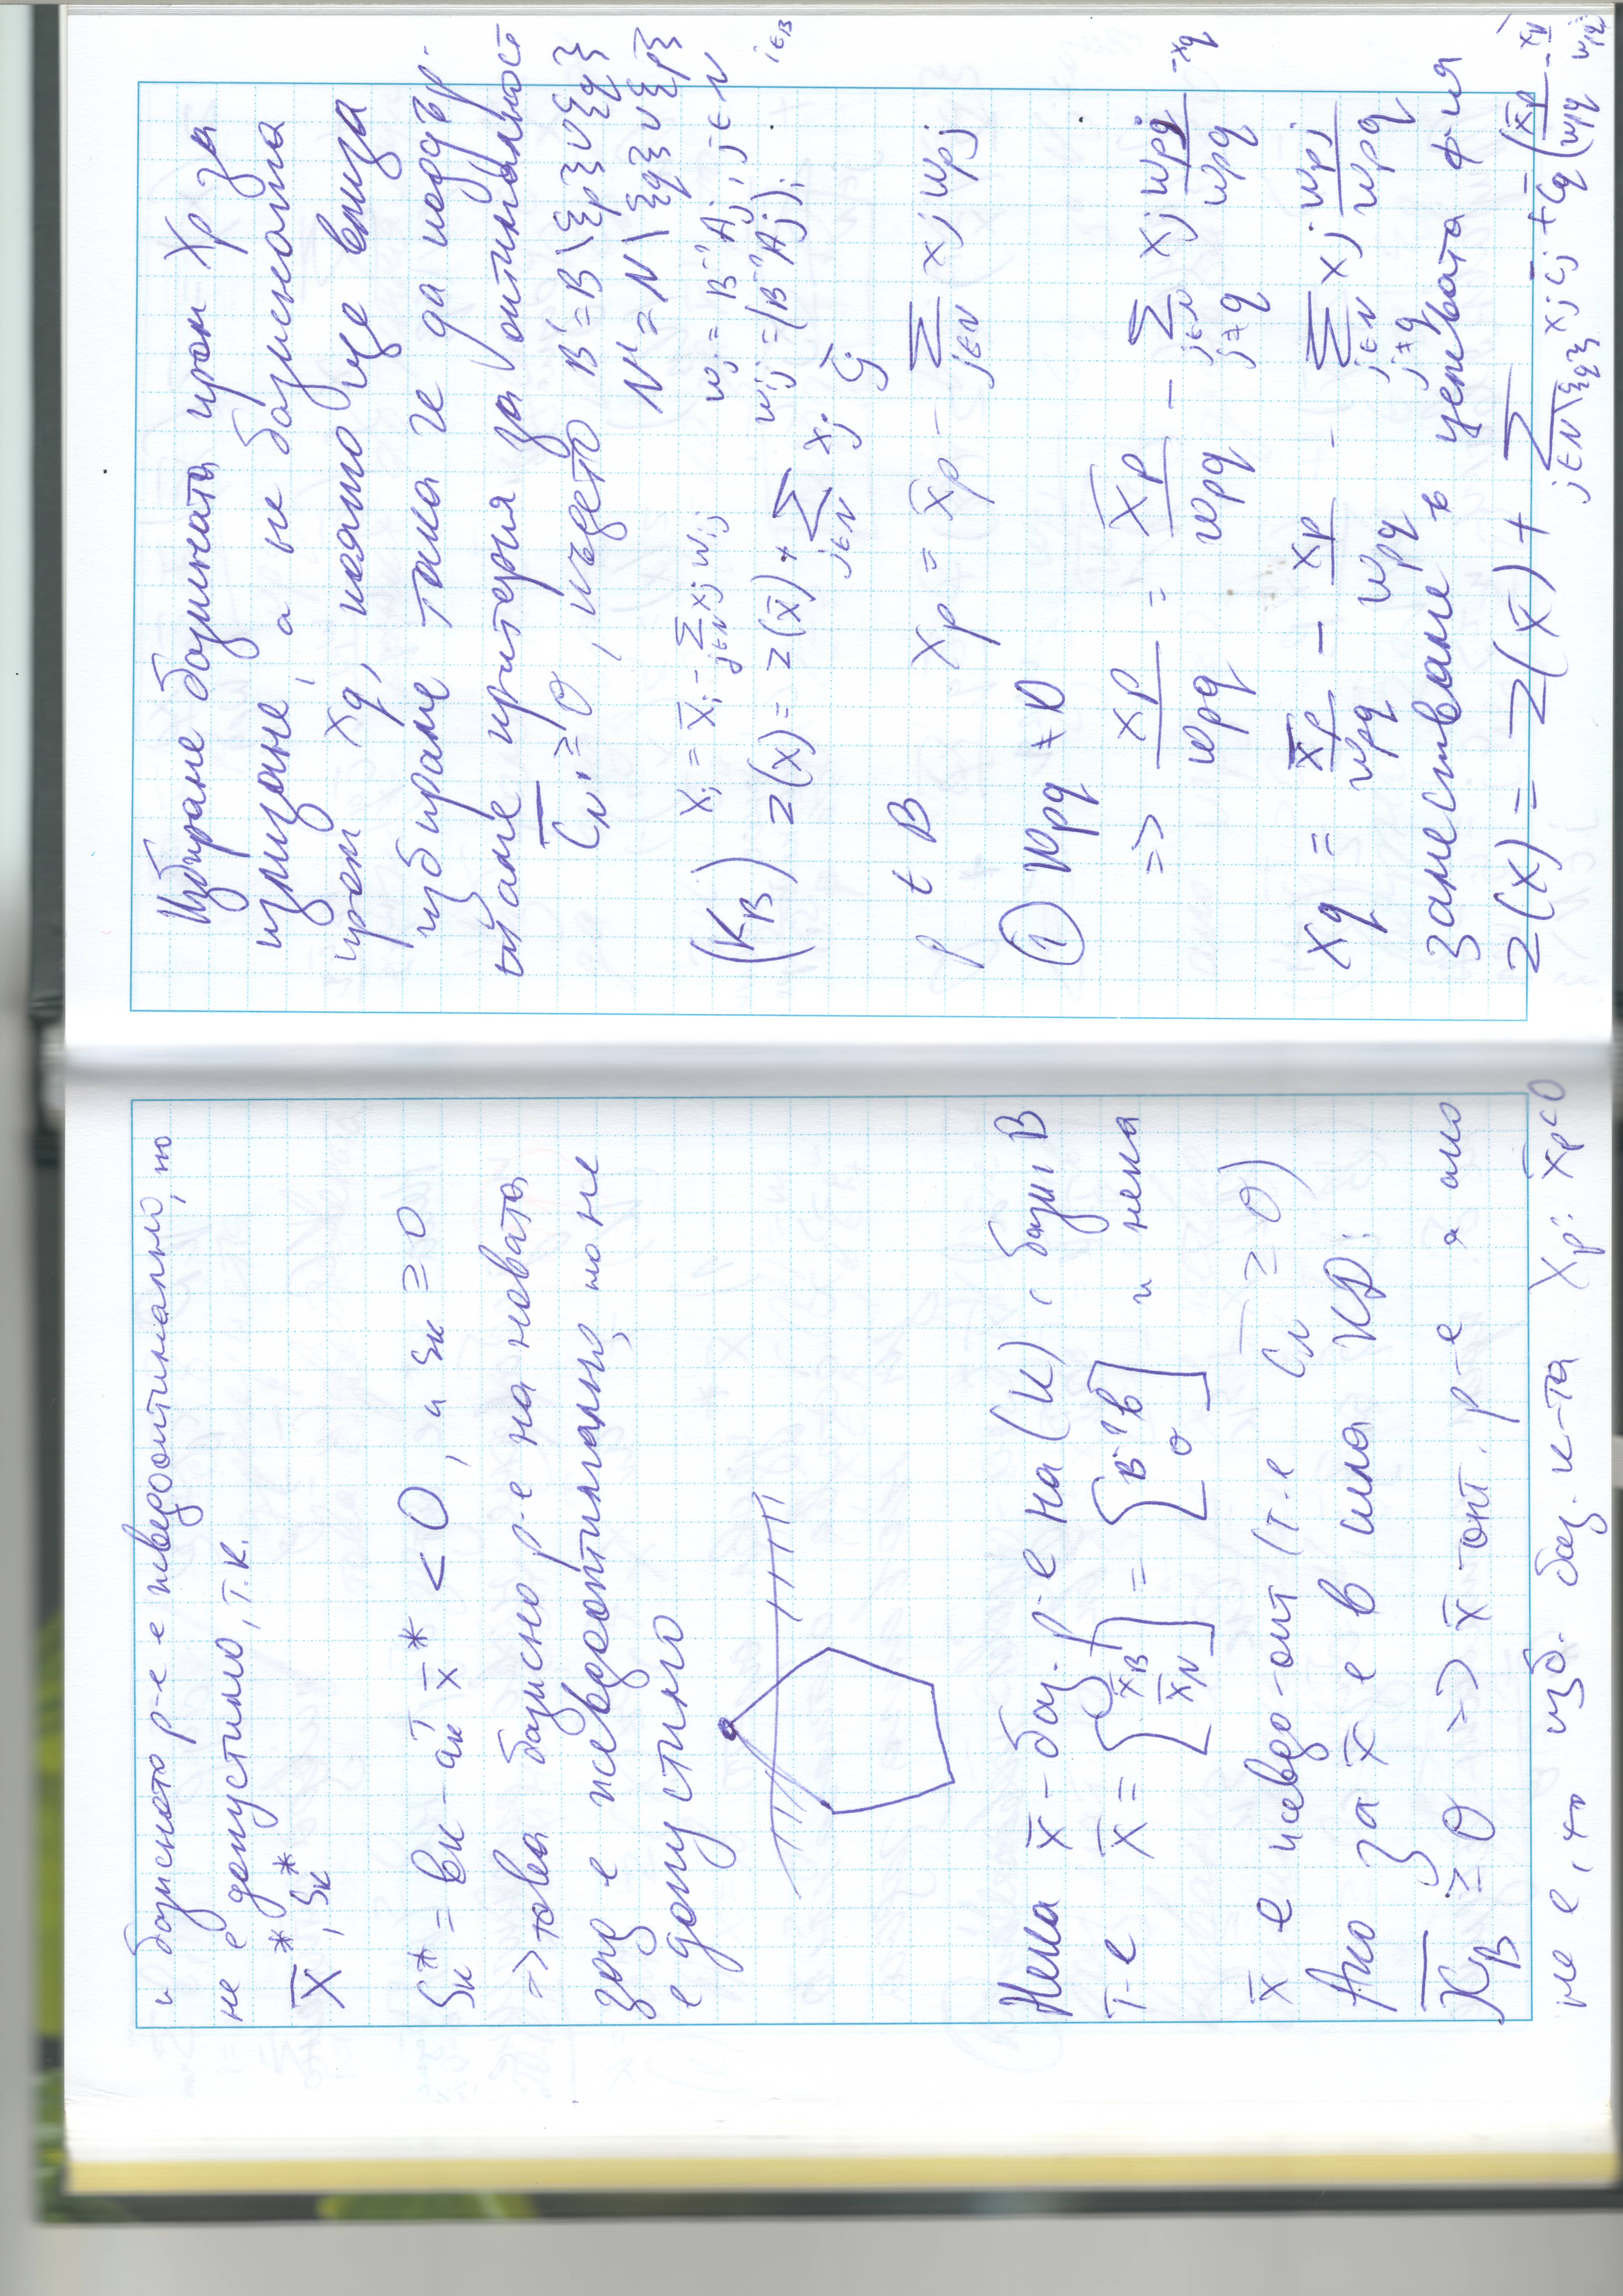 и базисното р-е е псевдооптимално, но
не е допустимо, т.к.
x̄*, ξₖ*
ξₖ* = bₖ - aₖᵀ x̄* < 0, а ξₖ ≥ 0
=> това базисно р-е на новата
зад е псевдооптимално, но не
е допустимо
Нека x̄ - баз. р-е на (K) с базис B
т-е x̄ = [x̄_B x̄_N] = [B⁻¹b 0] и нека
x̄ е псевдо-опт (т-е c̄_N ≥ 0)
Ако за x̄ е в сила КД:
x̄_B ≥ 0 => x̄ опт. р-е, а ако
не е, то изб. баз. к-та x_p: x̄_p < 0
Избираме базисната пром x_p за
излизане, а не базисната
пром x_q, която ще влиза
избираме така че да поддър-
жаме критерия за оптималност
c̄_N' ≥ 0, където B' = B \ {p} ∪ {q}
N' = N \ {q} ∪ {p}
(K_B) xᵢ = x̄ᵢ - Σ_{j∈N} xⱼ wᵢⱼ wⱼ = B⁻¹Aⱼ, j ∈ N
z(x) = z(x̄) + Σ_{j∈N} xⱼ c̄ⱼ wᵢⱼ = (B⁻¹Aⱼ)ᵢ i∈B
p ∈ B x_p = x̄_p - Σ_{j∈N} xⱼ w_pj
① w_pq ≠ 0
=> x_p/w_pq = x̄_p/w_pq - Σ_{j∈N j≠q} xⱼ w_pj/w_pq - x_q
x_q = x̄_p/w_pq - x_p/w_pq - Σ_{j∈N j≠q} xⱼ w_pj/w_pq
заместваме в целевата ф-ия
z(x) = z(x̄) + Σ_{j∈N\{q}} xⱼ c̄ⱼ + c̄_q (x̄_p/w_pq - x_p/w_pq -